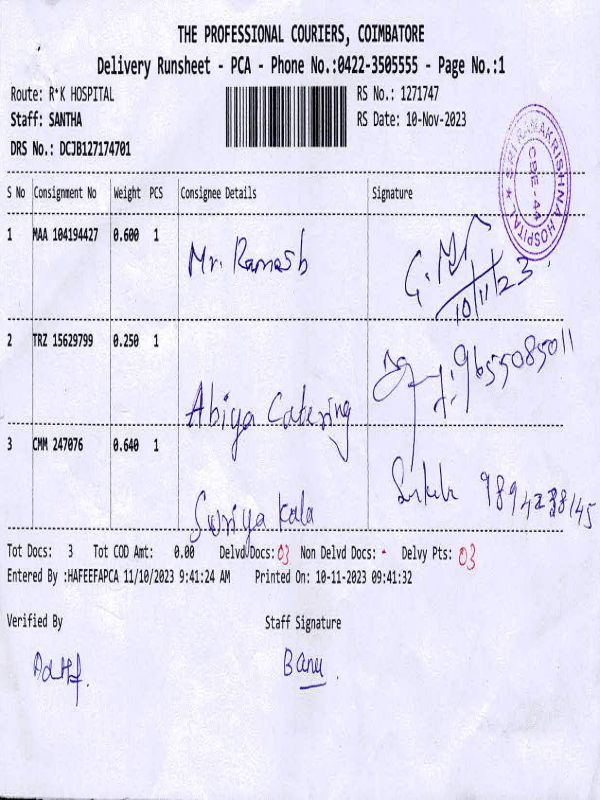 THE PROFESSIONAL COURIERS, COIMBATORE
Delivery Runsheet - PCA - Phone No.:0422-3505555 - Page No.:1
Route: R*K HOSPITAL RS No.: 1271747
Staff: SANTHA RS Date: 10-Nov-2023
DRS No.: DCJB127174701
SRI RAMAKRISHNA HOSPITAL ★
CBE - 44
S No Consignment No Weight PCS Consignee Details Signature
1 MAA 104194427 0.600 1 Mr. Ramesh
10/11/23
2 TRZ 15629799 0.250 1 Abiya Catering 9655085011
3 CMM 247076 0.640 1 Suriya Kala
Tot Docs: 3 Tot COD Amt: 0.00 Delvd Docs: 03 Non Delvd Docs: - Delvy Pts: 03
Entered By :HAFEEFAPCA 11/10/2023 9:41:24 AM Printed On: 10-11-2023 09:41:32
Verified By Staff Signature
Banu